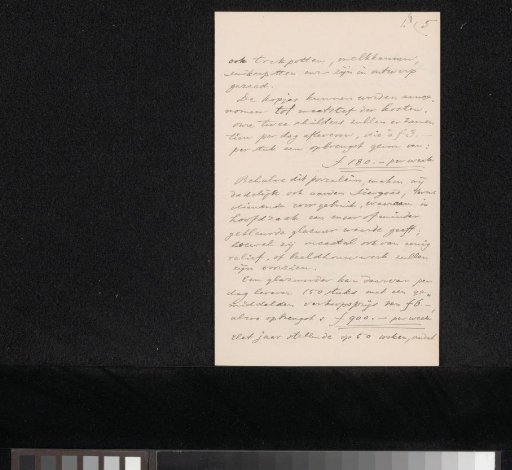 5
ook trekpotten, melkkannen,
suikerpotten enz. zijn in ontwerp
gereed.
De kopjes kunnen worden aange-
nomen tot maatstaf der kosten.
onze twee schilders zullen er samen
tien per dag afleveren, die à f 3.—
per stuk een opbrengst geven van:
f 180.— per week
Behalve dit porzelein maken wij
dadelijk ook aarden
dienende voor gebruik, waaraan in
hoofdzaak een meer of minder
gekleurde glazuur waarde geeft;
hoewel zij meestal ook van eenig
relief, of beeldhouwwerk zullen
zijn voorzien.
Een glazuurder kan daarvan per
dag leveren 150 stuks met een ge-
middelden verkoopsprijs van f
alzoo opbrengst: f 900.— per week
Het jaar stellende op 50 weken,